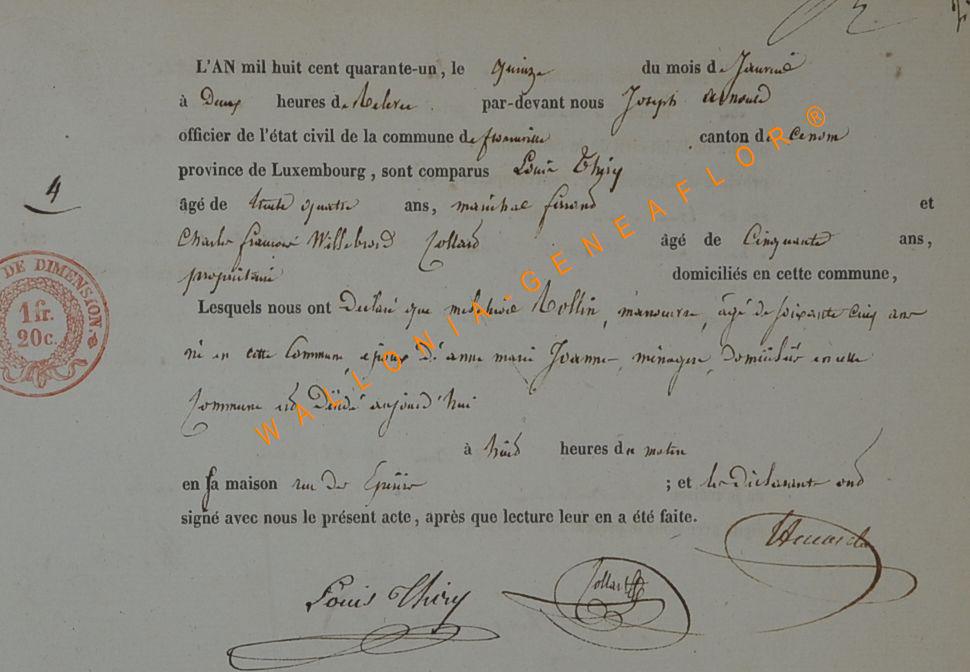 4
DE DIMENSION.
1 fr.
20 c.
L'AN mil huit cent quarante-un, le quinze du mois de Janvier
à Deux heures de Relevée par-devant nous Joseph Arnould
officier de l'état civil de la commune de canton de
province de Luxembourg, sont comparus Louis Thiry
âgé de trente quatre ans, maréchal ferrand et
Charles François Willebrord Collard âgé de Cinquante ans,
propriétaire domiciliés en cette commune,
Lesquels nous ont Déclaré que Rollin, manoeuvre, âgé de soixante cinq ans
né en cette Commune époux D'anne marie Joanne, ménagere, domiciliée en cette
Commune est Décédé aujourd'hui
à huit heures du matin
en sa maison rue des ; et les Déclarants ont
signé avec nous le présent acte, après que lecture leur en a été faite.
Louis Thiry
Collard
WALLONIA-GENEAFLOR®